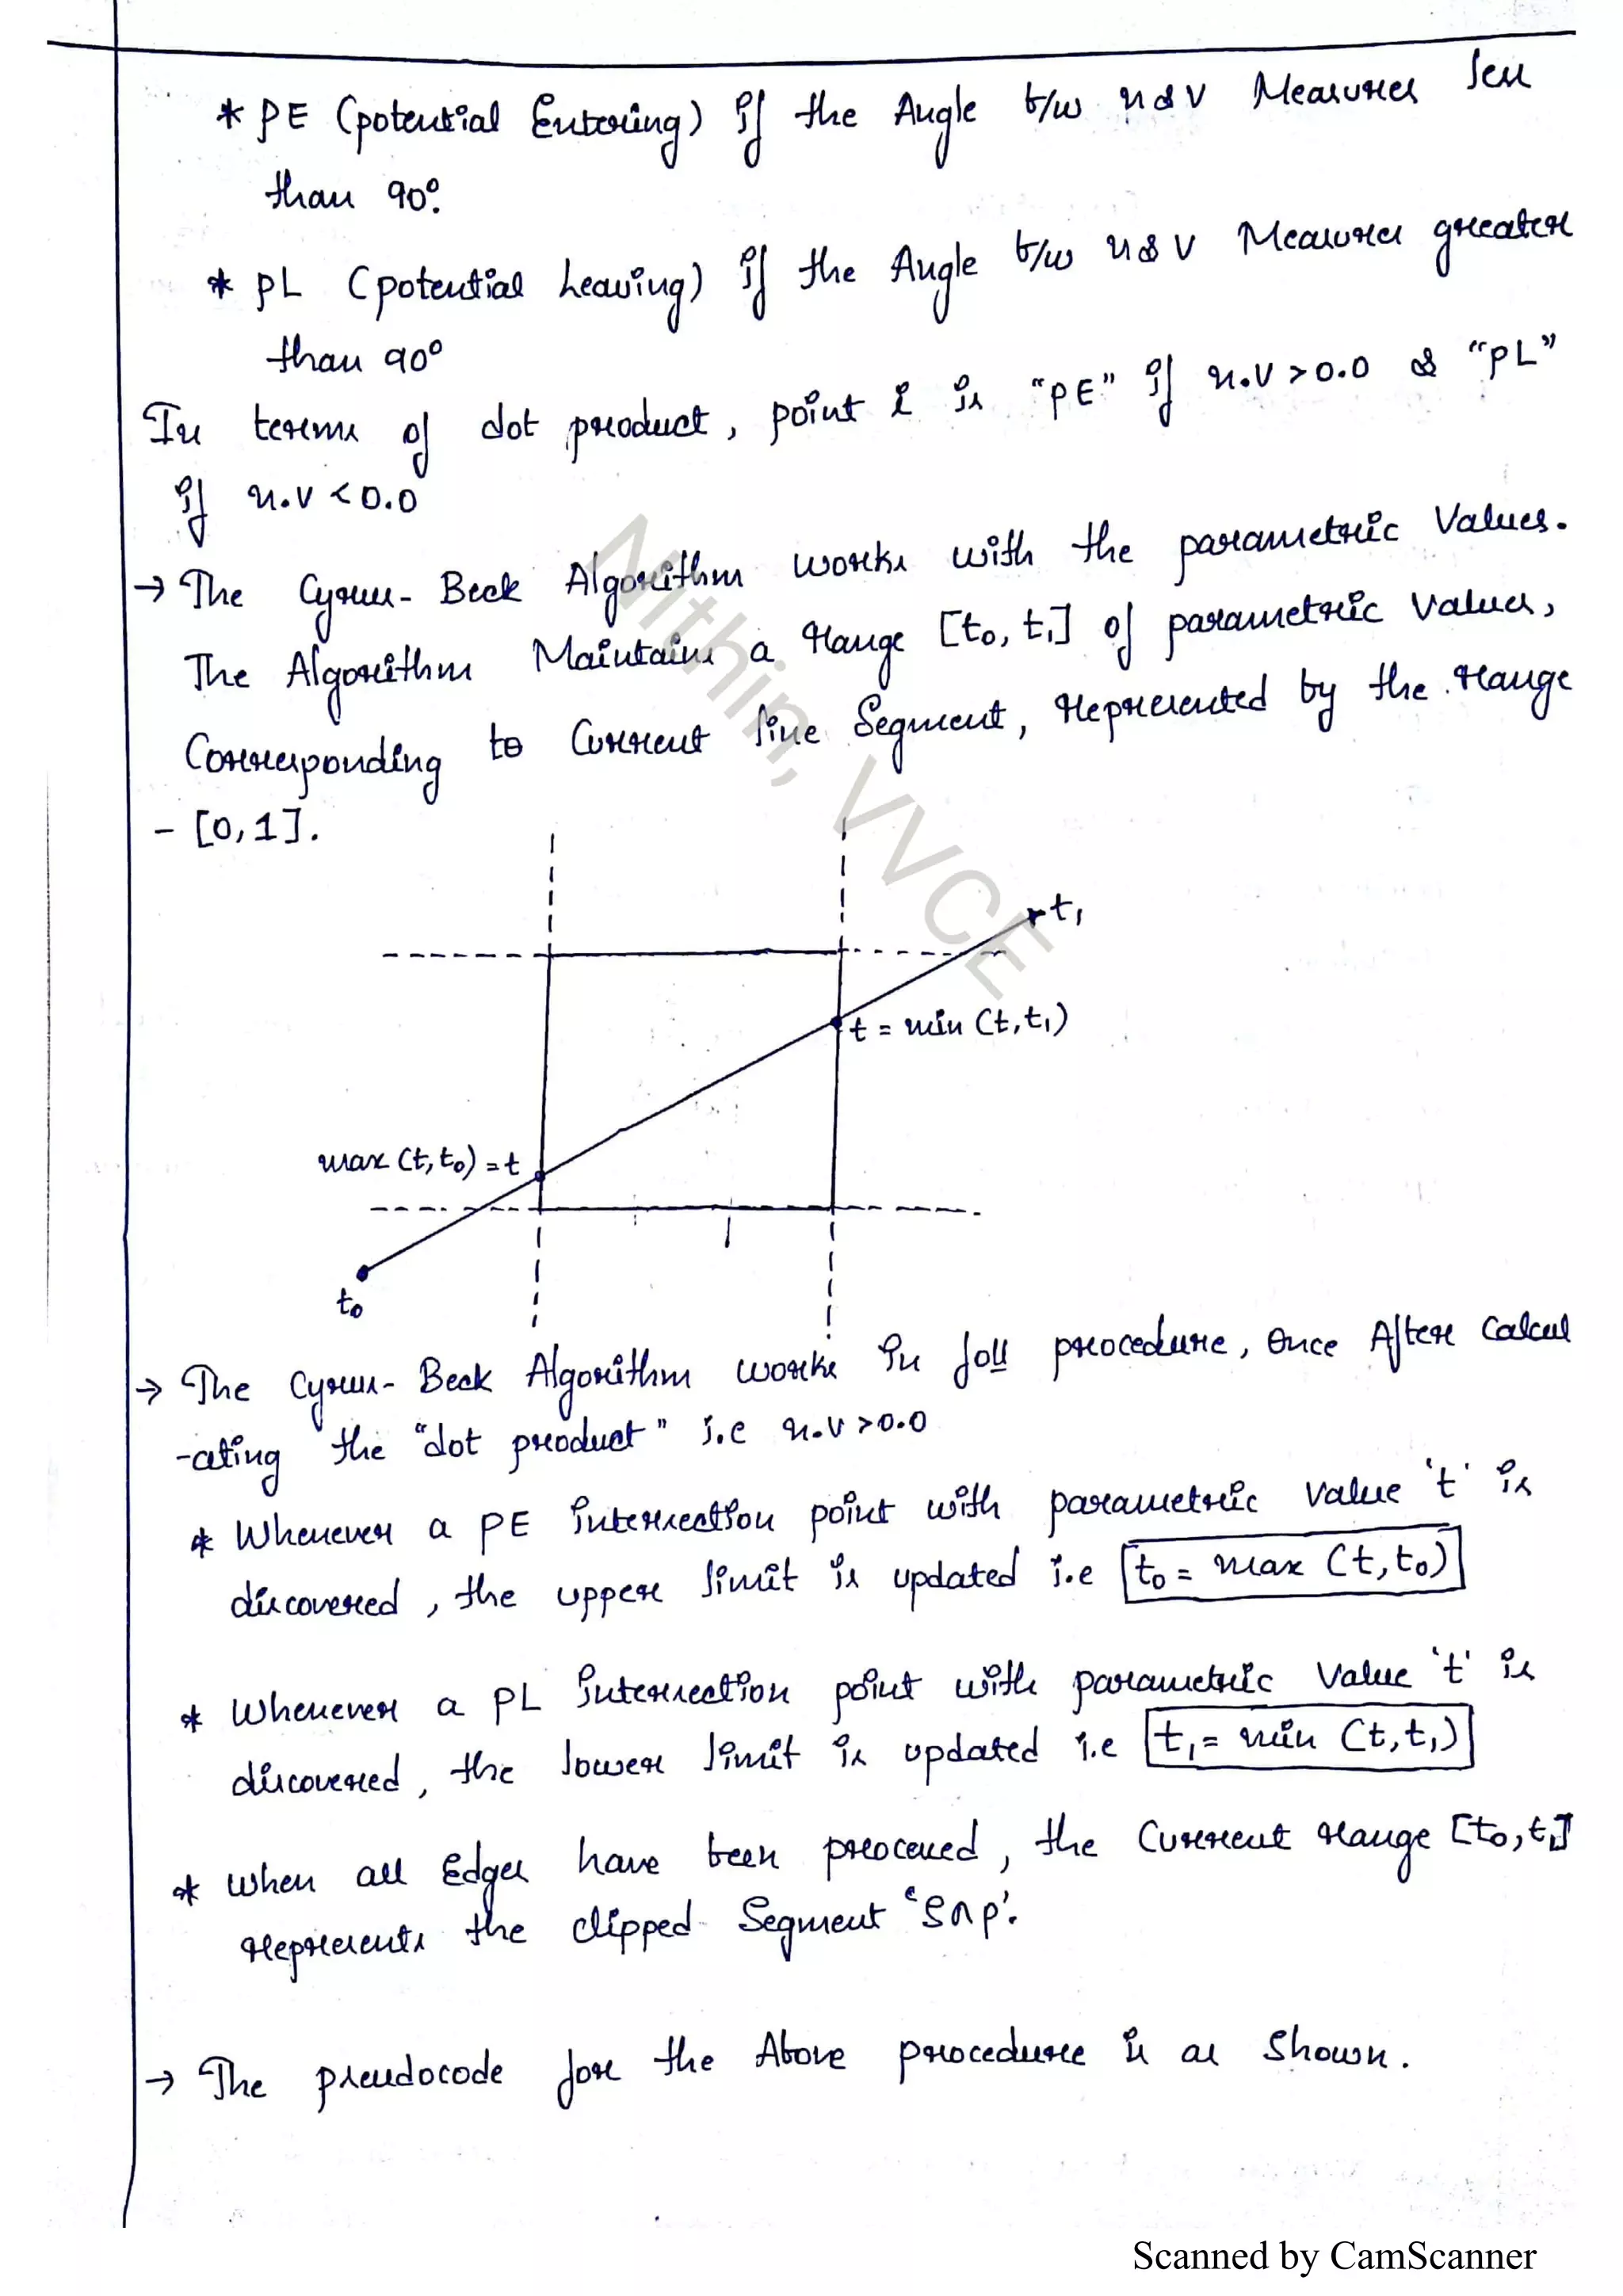 * PE (potential Entering) if the Angle b/w n & v Measures less
than 90°.
* PL (potential Leaving) if the Angle b/w n & v Measures greater
than 90°
In terms of dot product, point i is "PE" if n.v > 0.0 & "PL"
if n.v < 0.0
→ The Cyrus-Beck Algorithm works with the parametric Values.
The Algorithm Maintains a range [t0, t1] of parametric values,
Corresponding to Current line Segment, represented by the range
- [0,1].
t1
t = min (t,t1)
max (t,t0) = t
t0
→ The Cyrus-Beck Algorithm works in foll procedure, Once After Calcul
-ating the "dot product" i.e n.v > 0.0
* Whenever a PE intersection point with parametric value 't' is
discovered, the upper limit is updated i.e t0 = max (t,t0)
* Whenever a PL intersection point with parametric Value 't' is
discovered, the lower limit is updated i.e t1 = min (t,t1)
* when all Edges have been processed, the Current range [t0,t1]
represents the clipped Segment 'S∩P'.
→ The pseudocode for the Above procedure is as Shown.
Nithin, VVCE
Scanned by CamScanner